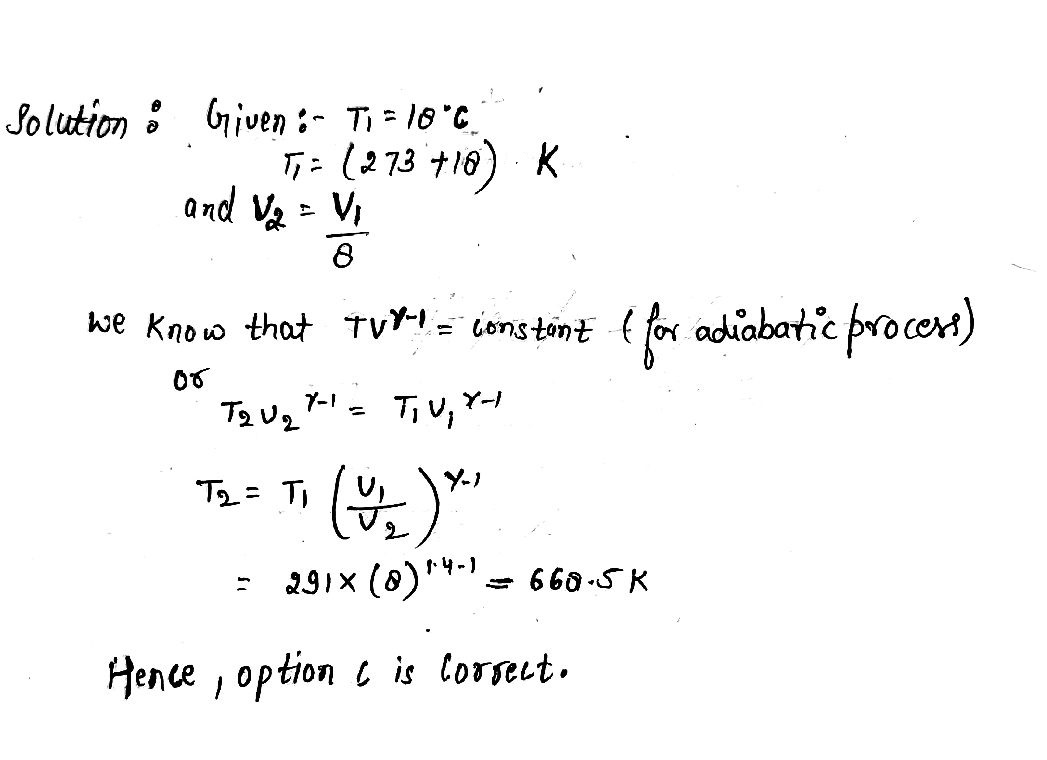 Solution : Given :- T₁ = 18°C
T₁ = (273 + 18) K
and V₂ = V₁/8
we know that TV^γ-1 = constant (for adiabatic process)
or
T₂V₂^γ-1 = T₁V₁^γ-1
T₂ = T₁ (V₁/V₂)^γ-1
= 291 × (8)^1.4-1 = 668.5 K
Hence, option c is correct.